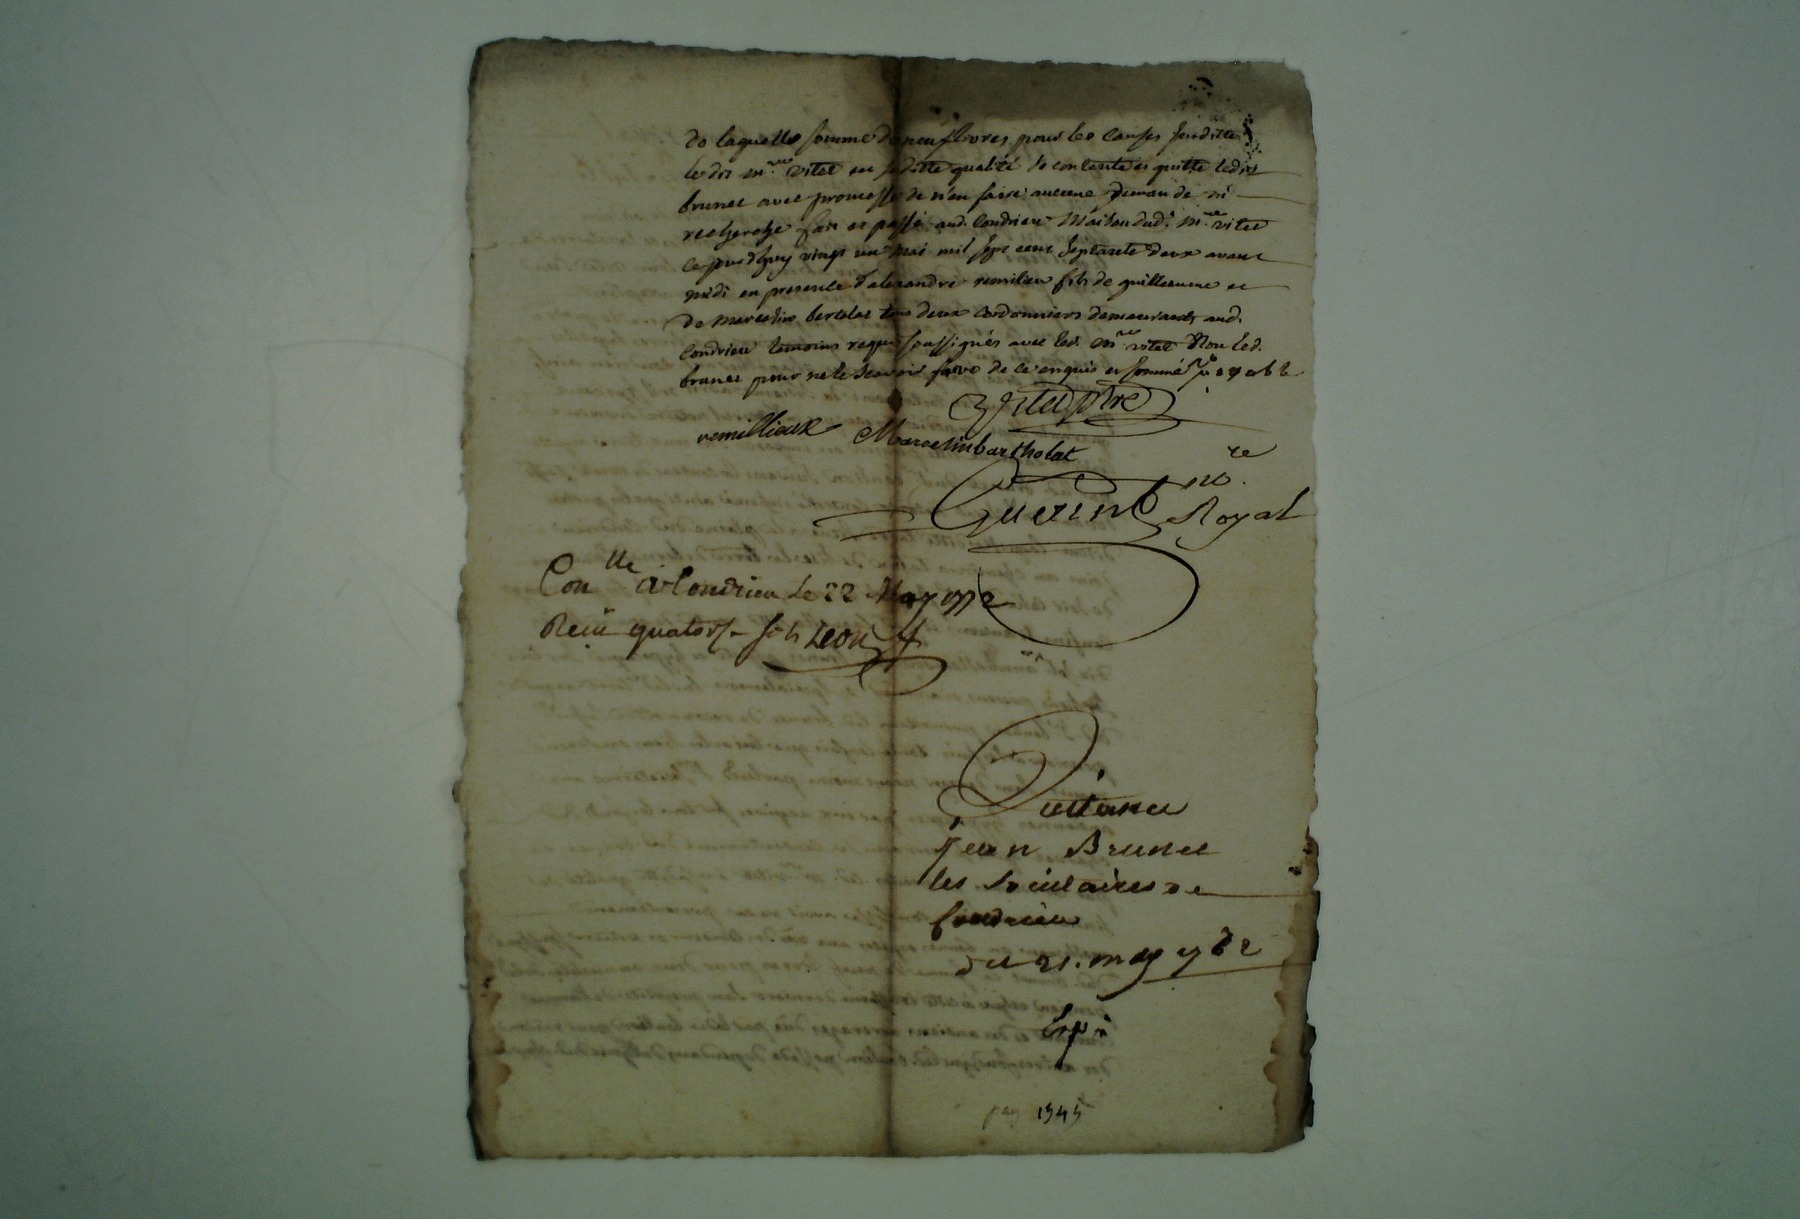 de laquelle somme de neuf livres pour les causes susdites
led.it m.re vitet en saditte qualité se contente et quitte ledit
brunet avec promesse de n'en faire aucune demande ni
recherche fait et passé aud. Condrieu Maison dud. m.re vitet
ce jourd'huy vingt un mai mil sept cent septante deux avant
midi en presence d'alexandre remilieu fils de guillaume et
de marcelin bertolat tous deux cordonniers demeurants aud.
Condrieu temoins requis soussignés avec led. m.re vitet Non led.
brunet pour ne le scavoir faire de ce enquis et sommé
Vitet ptre
remillieux Marcelin bartholat
Guerin n.re
Royal
Con.lle à Condrieu le 22 May 1772
Reçu quatorze sols Leon
Quittance
Jean Brunet
les Sociétaires de
Condrieu
du 21. may 1772
Exp.
pag 1545